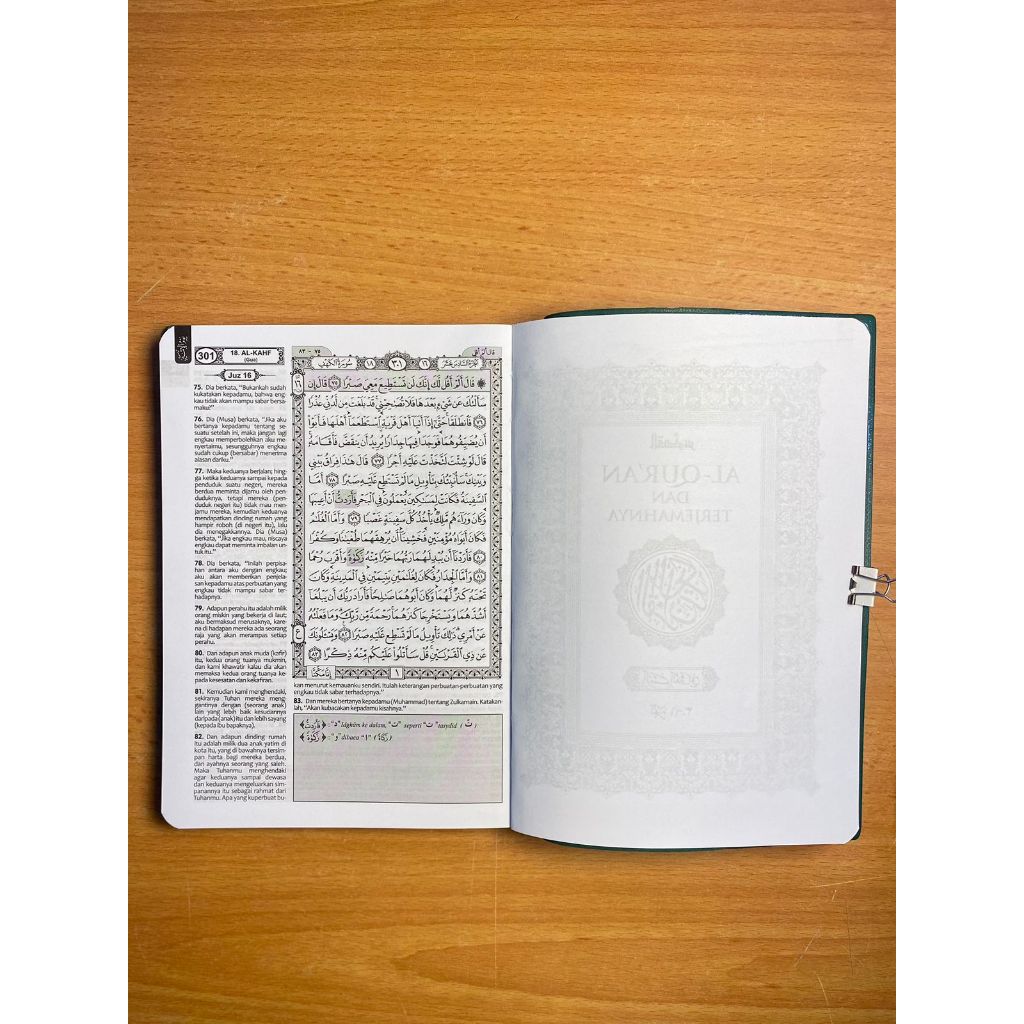 301
18. AL-KAHF
(Gua)
Juz 16
75. Dia berkata, "Bukankah sudah
kukatakan kepadamu, bahwa eng
kau tidak akan mampu sabar bersa-
maku?"
76. Dia (Musa) berkata, "Jika aku
bertanya kepadamu tentang se-
suatu setelah ini, maka jangan lagi
engkau memperbolehkan aku me-
nyertaimu, sesungguhnya engkau
sudah cukup (bersabar) menerima
alasan dariku."
77. Maka keduanya berjalan; hing-
ga ketika keduanya sampai kepada
penduduk suatu negeri, mereka
berdua meminta dijamu oleh pen-
duduknya, tetapi mereka (pen-
duduk negeri itu) tidak mau men-
jamu mereka, kemudian keduanya
mendapatkan dinding rumah yang
hampir roboh (di negeri itu), lalu
dia menegakkannya. Dia (Musa)
berkata, "Jika engkau mau, niscaya
engkau dapat meminta imbalan un-
tuk itu."
78. Dia berkata, "Inilah perpisa-
han antara aku dengan engkau;
aku akan memberikan penjela-
san kepadamu atas perbuatan yang
engkau tidak mampu sabar ter-
hadapnya.
79. Adapun perahu itu adalah milik
orang miskin yang bekerja di laut;
aku bermaksud merusaknya, kare-
na di hadapan mereka ada seorang
raja yang akan merampas setiap
perahu.
80. Dan adapun anak muda (kafir)
itu, kedua orang tuanya mukmin,
dan kami khawatir kalau dia akan
memaksa kedua orang tuanya ke-
pada kesesatan dan kekafiran.
81. Kemudian kami menghendaki,
sekiranya Tuhan mereka meng-
gantinya dengan (seorang anak)
lain yang lebih baik kesuciannya
daripada (anak) itu dan lebih sayang
(kepada ibu bapaknya).
82. Dan adapun dinding rumah
itu adalah milik dua anak yatim di
kota itu, yang di bawahnya tersim-
pan harta bagi mereka berdua,
dan ayahnya seorang yang saleh.
Maka Tuhanmu menghendaki
agar keduanya sampai dewasa
dan keduanya mengeluarkan sim-
panannya itu sebagai rahmat dari
Tuhanmu. Apa yang kuperbuat bu-
قال ألم ٧٥ - ٨٢
١٦ ٣٠١ ١٨ سورة الكهف
۞ قَالَ أَلَمْ أَقُل لَّكَ إِنَّكَ لَن تَسْتَطِيعَ مَعِيَ صَبْرًا ﴿٧٥﴾ قَالَ إِن
سَأَلْتُكَ عَن شَيْءٍ بَعْدَهَا فَلَا تُصَاحِبْنِي قَدْ بَلَغْتَ مِن لَّدُنِّي عُذْرًا
﴿٧٦﴾ فَانطَلَقَا حَتَّىٰ إِذَا أَتَيَا أَهْلَ قَرْيَةٍ اسْتَطْعَمَا أَهْلَهَا فَأَبَوْا
أَن يُضَيِّفُوهُمَا فَوَجَدَا فِيهَا جِدَارًا يُرِيدُ أَن يَنقَضَّ فَأَقَامَهُ
قَالَ لَوْ شِئْتَ لَتَّخَذْتَ عَلَيْهِ أَجْرًا ﴿٧٧﴾ قَالَ هَٰذَا فِرَاقُ بَيْنِي
وَبَيْنِكَ سَأُنَبِّئُكَ بِتَأْوِيلِ مَا لَمْ تَسْتَطِع عَّلَيْهِ صَبْرًا ﴿٧٨﴾ أَمَّا
السَّفِينَةُ فَكَانَتْ لِمَسَاكِينَ يَعْمَلُونَ فِي الْبَحْرِ فَأَرَدتُّ أَنْ أَعِيبَهَا
وَكَانَ وَرَاءَهُم مَّلِكٌ يَأْخُذُ كُلَّ سَفِينَةٍ غَصْبًا ﴿٧٩﴾ وَأَمَّا الْغُلَامُ
فَكَانَ أَبَوَاهُ مُؤْمِنَيْنِ فَخَشِينَا أَن يُرْهِقَهُمَا طُغْيَانًا وَكُفْرًا
﴿٨٠﴾ فَأَرَدْنَا أَن يُبْدِلَهُمَا رَبُّهُمَا خَيْرًا مِّنْهُ زَكَوٰةً وَأَقْرَبَ رُحْمًا
﴿٨١﴾ وَأَمَّا الْجِدَارُ فَكَانَ لِغُلَامَيْنِ يَتِيمَيْنِ فِي الْمَدِينَةِ وَكَانَ
تَحْتَهُ كَنزٌ لَّهُمَا وَكَانَ أَبُوهُمَا صَالِحًا فَأَرَادَ رَبُّكَ أَن يَبْلُغَا
أَشُدَّهُمَا وَيَسْتَخْرِجَا كَنزَهُمَا رَحْمَةً مِّن رَّبِّكَ وَمَا فَعَلْتُهُ
عَنْ أَمْرِي ذَٰلِكَ تَأْوِيلُ مَا لَمْ تَسْطِع عَّلَيْهِ صَبْرًا ﴿٨٢﴾ وَيَسْأَلُونَكَ
عَن ذِي الْقَرْنَيْنِ قُلْ سَأَتْلُو عَلَيْكُم مِّنْهُ ذِكْرًا ﴿٨٣﴾
إِنَّا مَكَّنَّا
kan menurut kemauanku sendiri. Itulah keterangan perbuatan-perbuatan yang
engkau tidak sabar terhadapnya."
83. Dan mereka bertanya kepadamu (Muhammad) tentang Zulkarnain. Katakan-
lah, "Akan kubacakan kepadamu kisahnya."
﴿فَأَرَدتُّ﴾ : "د" Idghâm ke dalam, "ت" seperti "ت" tasydid (تّ)
﴿زَكَوٰةً﴾ : "و" dibaca "ا" (زَكَاةً)
AL-QUR'AN
DAN
TERJEMAHNYA